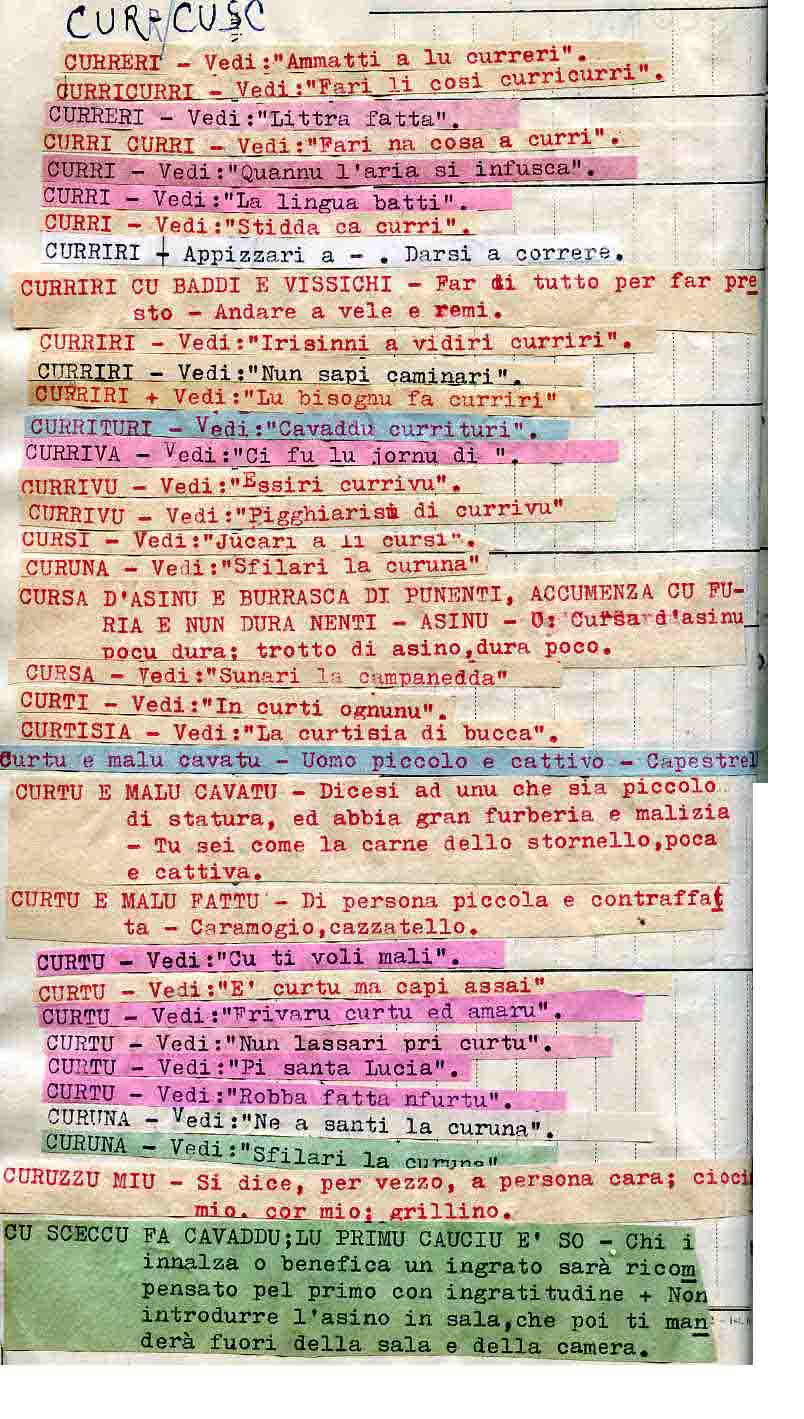 CUR/CUSC
CURRERI - Vedi:"Ammatti a lu curreri".
CURRICURRI - Vedi:"Fari li cosi curricurri".
CURRERI - Vedi:"Littra fatta".
CURRI CURRI - Vedi:"Fari na cosa a curri".
CURRI - Vedi:"Quannu l'aria si infusca".
CURRI - Vedi:"La lingua batti".
CURRI - Vedi:"Stidda ca curri".
CURRIRI + Appizzari a - . Darsi a correre.
CURRIRI CU BADDI E VISSICHI - Far di tutto per far pre
sto - Andare a vele e remi.
CURRIRI - Vedi:"Irisinni a vidiri curriri".
CURRIRI - Vedi:"Nun sapi caminari".
CURRIRI + Vedi:"Lu bisognu fa curriri"
CURRITURI - Vedi:"Cavaddu currituri".
CURRIVA - Vedi:"Ci fu lu jornu di ".
CURRIVU - Vedi:"Essiri currivu".
CURRIVU - Vedi:"Pigghiarisi di currivu"
CURSI - Vedi:"Jucari a li cursi".
CURUNA - Vedi:"Sfilari la curuna"
CURSA D'ASINU E BURRASCA DI PUNENTI, ACCUMENZA CU FU-
RIA E NUN DURA NENTI - ASINU - O: Cursa d'asinu
pocu dura; trotto di asino,dura poco.
CURSA - Vedi:"Sunari la campanedda"
CURTI - Vedi:"In curti ognunu".
CURTISIA - Vedi:"La curtisia di bucca".
Curtu e malu cavatu - Uomo piccolo e cattivo - Capestrel
CURTU E MALU CAVATU - Dicesi ad unu che sia piccolo
di statura, ed abbia gran furberia e malizia
- Tu sei come la carne dello stornello,poca
e cattiva.
CURTU E MALU FATTU - Di persona piccola e contraffat
ta - Caramogio,cazzatello.
CURTU - Vedi:"Cu ti voli mali".
CURTU - Vedi:"E' curtu ma capi assai"
CURTU - Vedi:"Frivaru curtu ed amaru".
CURTU - Vedi:"Nun lassari pri curtu".
CURTU - Vedi:"Pi santa Lucia".
CURTU - Vedi:"Robba fatta nfurtu".
CURUNA - Vedi:"Ne a santi la curuna".
CURUNA - Vedi:"Sfilari la curuna"
CURUZZU MIU - Si dice, per vezzo, a persona cara; cioci
mio, cor mio; grillino.
CU SCECCU FA CAVADDU;LU PRIMU CAUCIU E' SO - Chi i
innalza o benefica un ingrato sarà ricom
pensato pel primo con ingratitudine + Non
introdurre l'asino in sala,che poi ti man
derà fuori della sala e della camera.